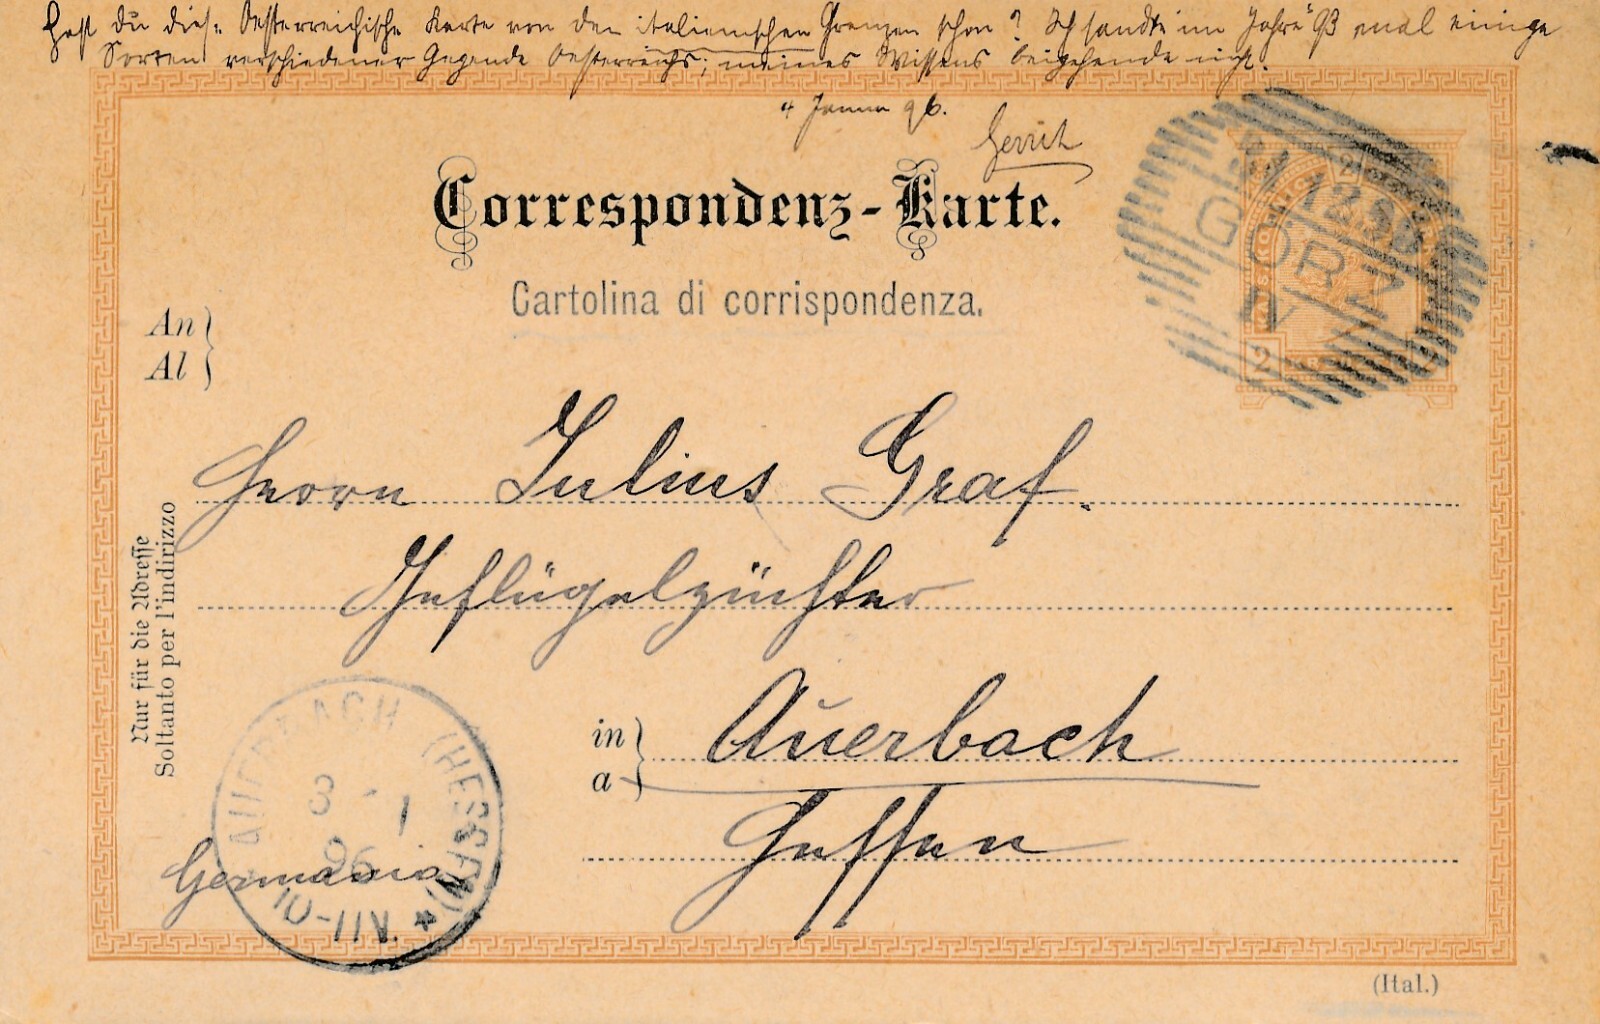 Hast du diese Oesterreichische Karte von den italienischen Grenzen schon? Ich sandte im Jahre 93 mal einige
Sorten verschiedener Gegende Oesterreichs; meines Wissens beigehende nicht.
4 Januar 96.
Gerrit
Correspondenz-Karte.
Cartolina di corrispondenza.
GÖRZ
2
2
An
Al
Herrn Julius Graf.
Geflügelzüchter
Nur für die Adresse
Soltanto per l'indirizzo
in Auerbach
a
Hessen
AUERBACH (HESSEN)
3 - 1
96
10-11 N.
Germania
(Ital.)